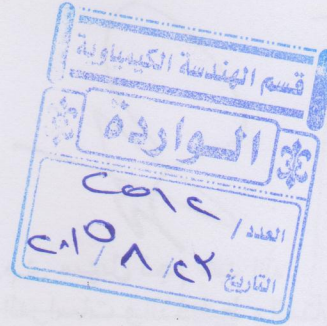 قسم الهندسة الكيمياوية
الواردة
العدد / ٢٥١٢
التاريخ ٢٣ / ٨ / ٢٠١٥